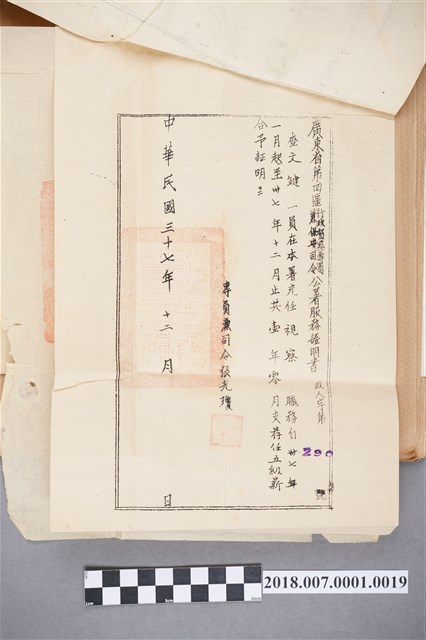 廣東省第四區行政督察專員兼保安司令公署服務證明書 政人字第290號
查文鍵 一員在本署充任視察 職務自卅七年
一月起至卅七年十二月止共壹年零月支荐任五級薪
合予証明
專員兼司令張光瓊
中華民國三十七年 十二 月 日
2018.007.0001.0019